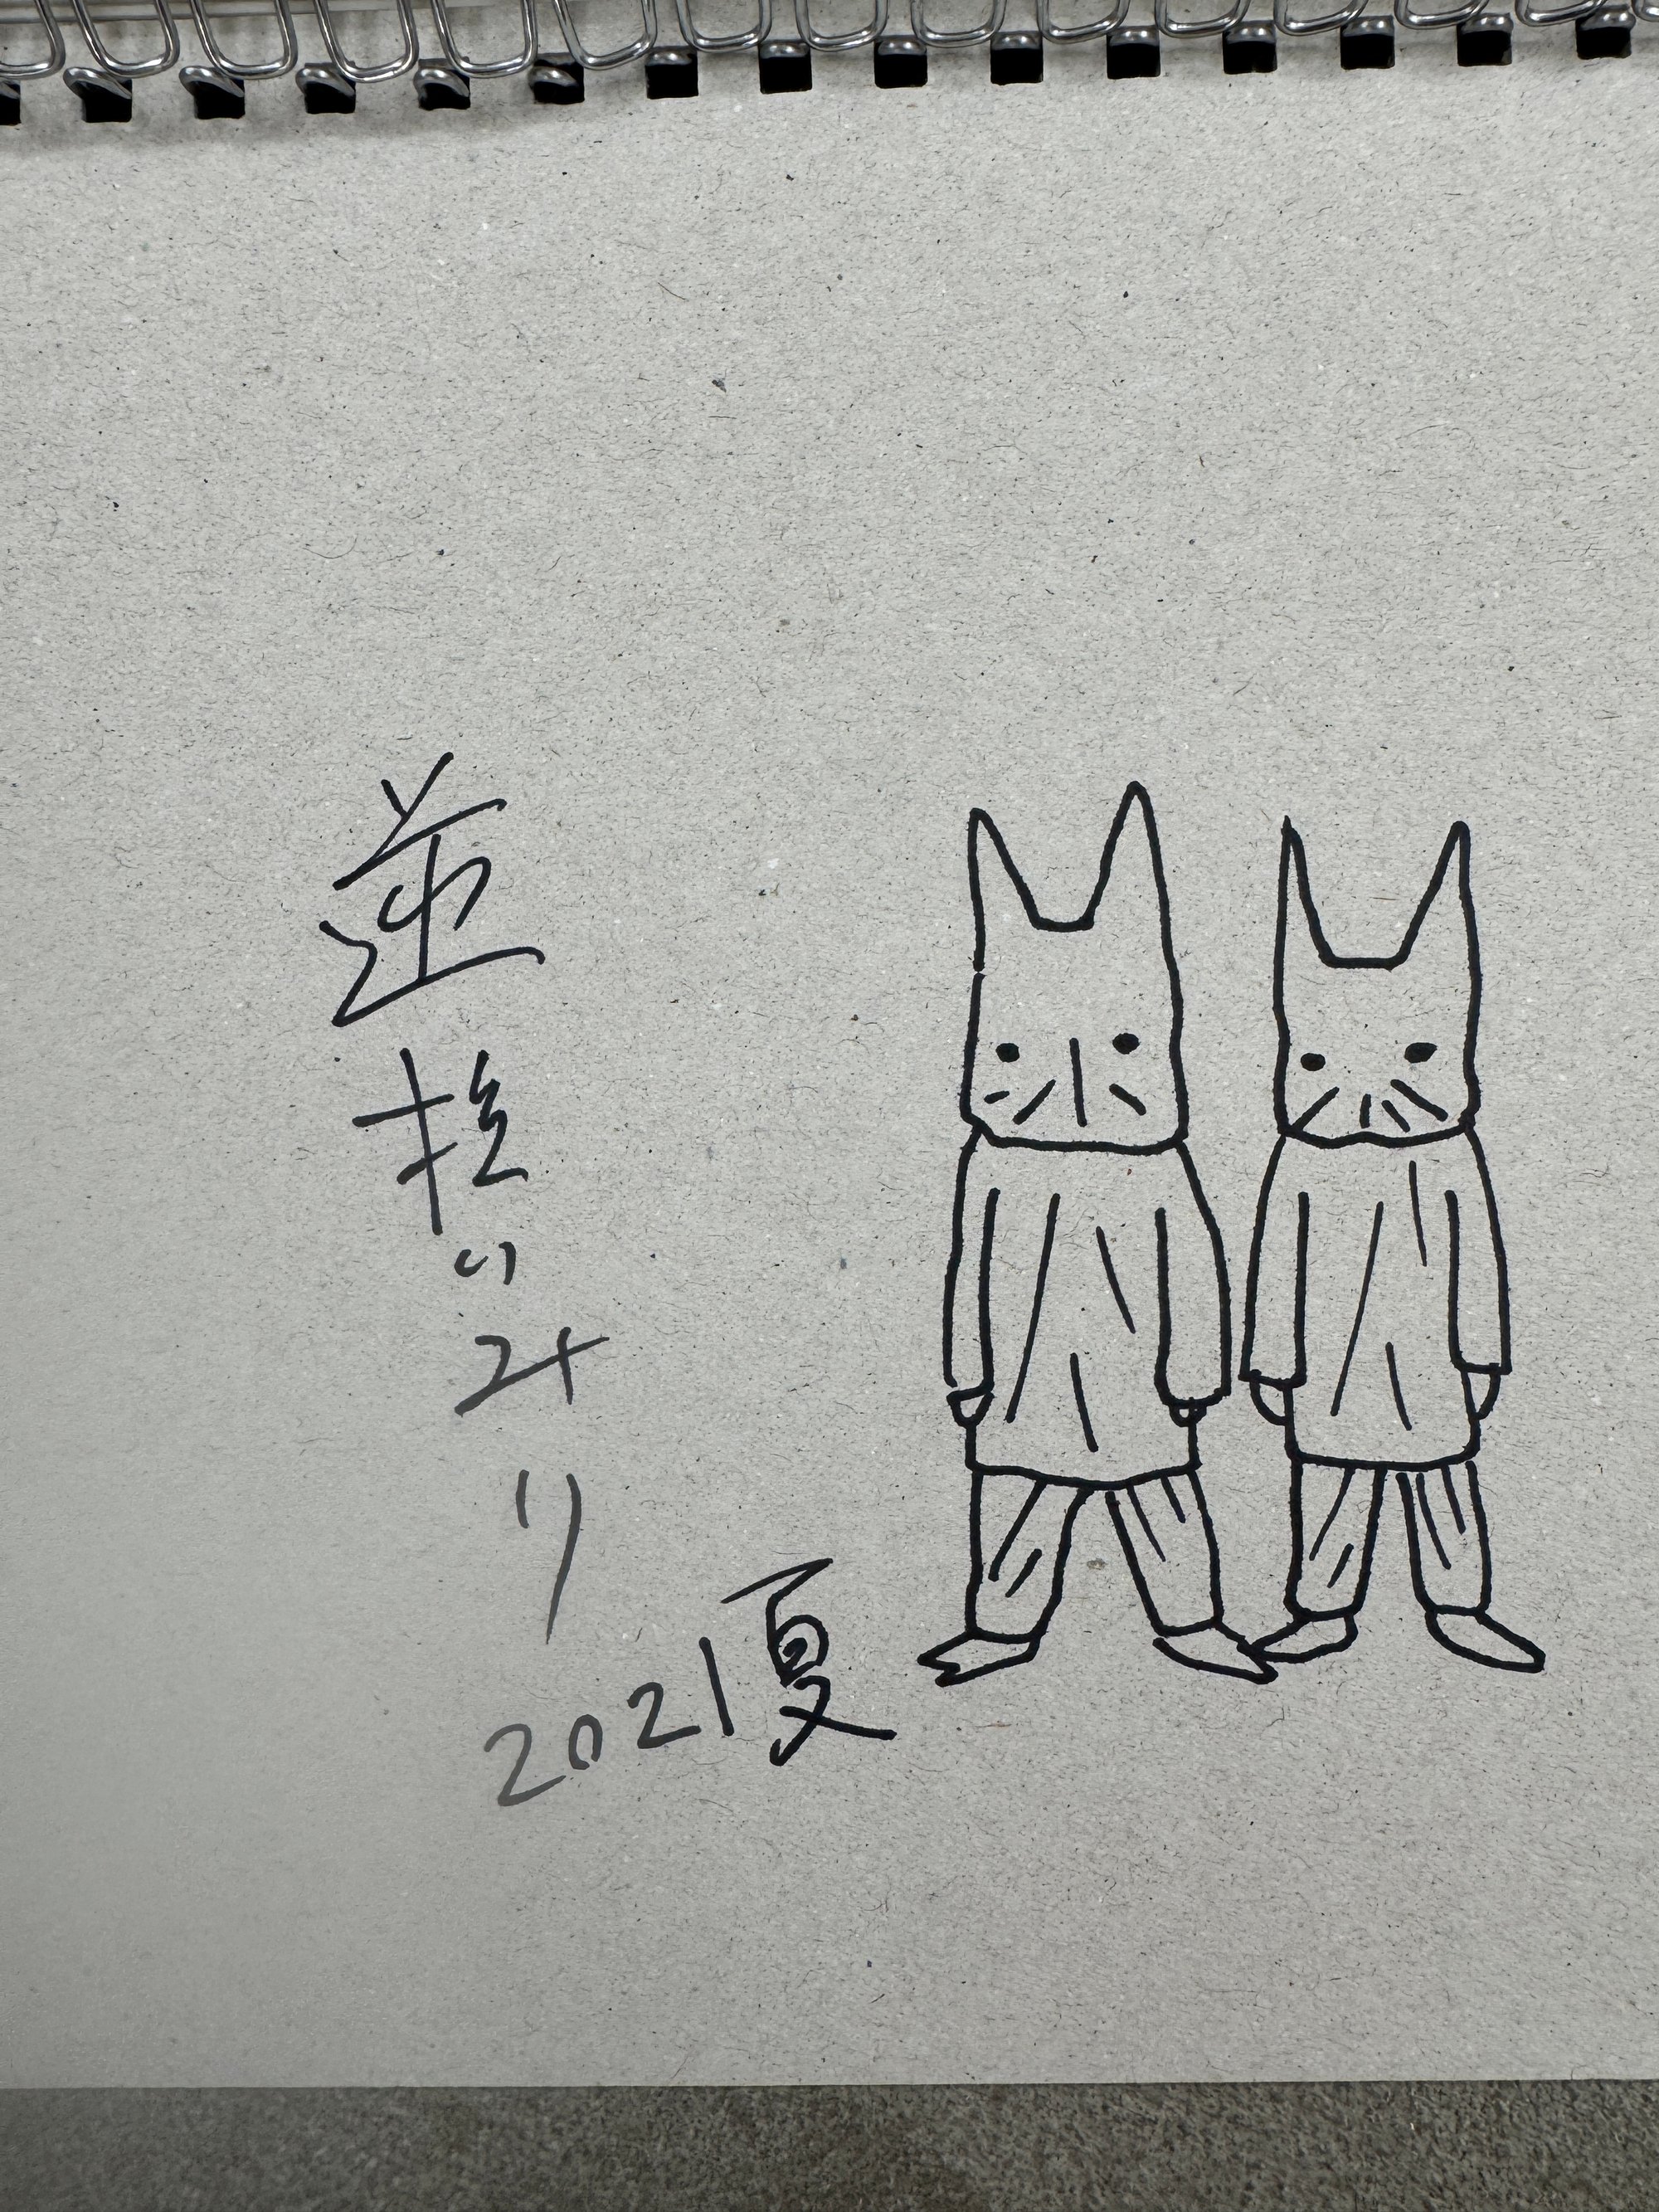 並松いみり
2021夏